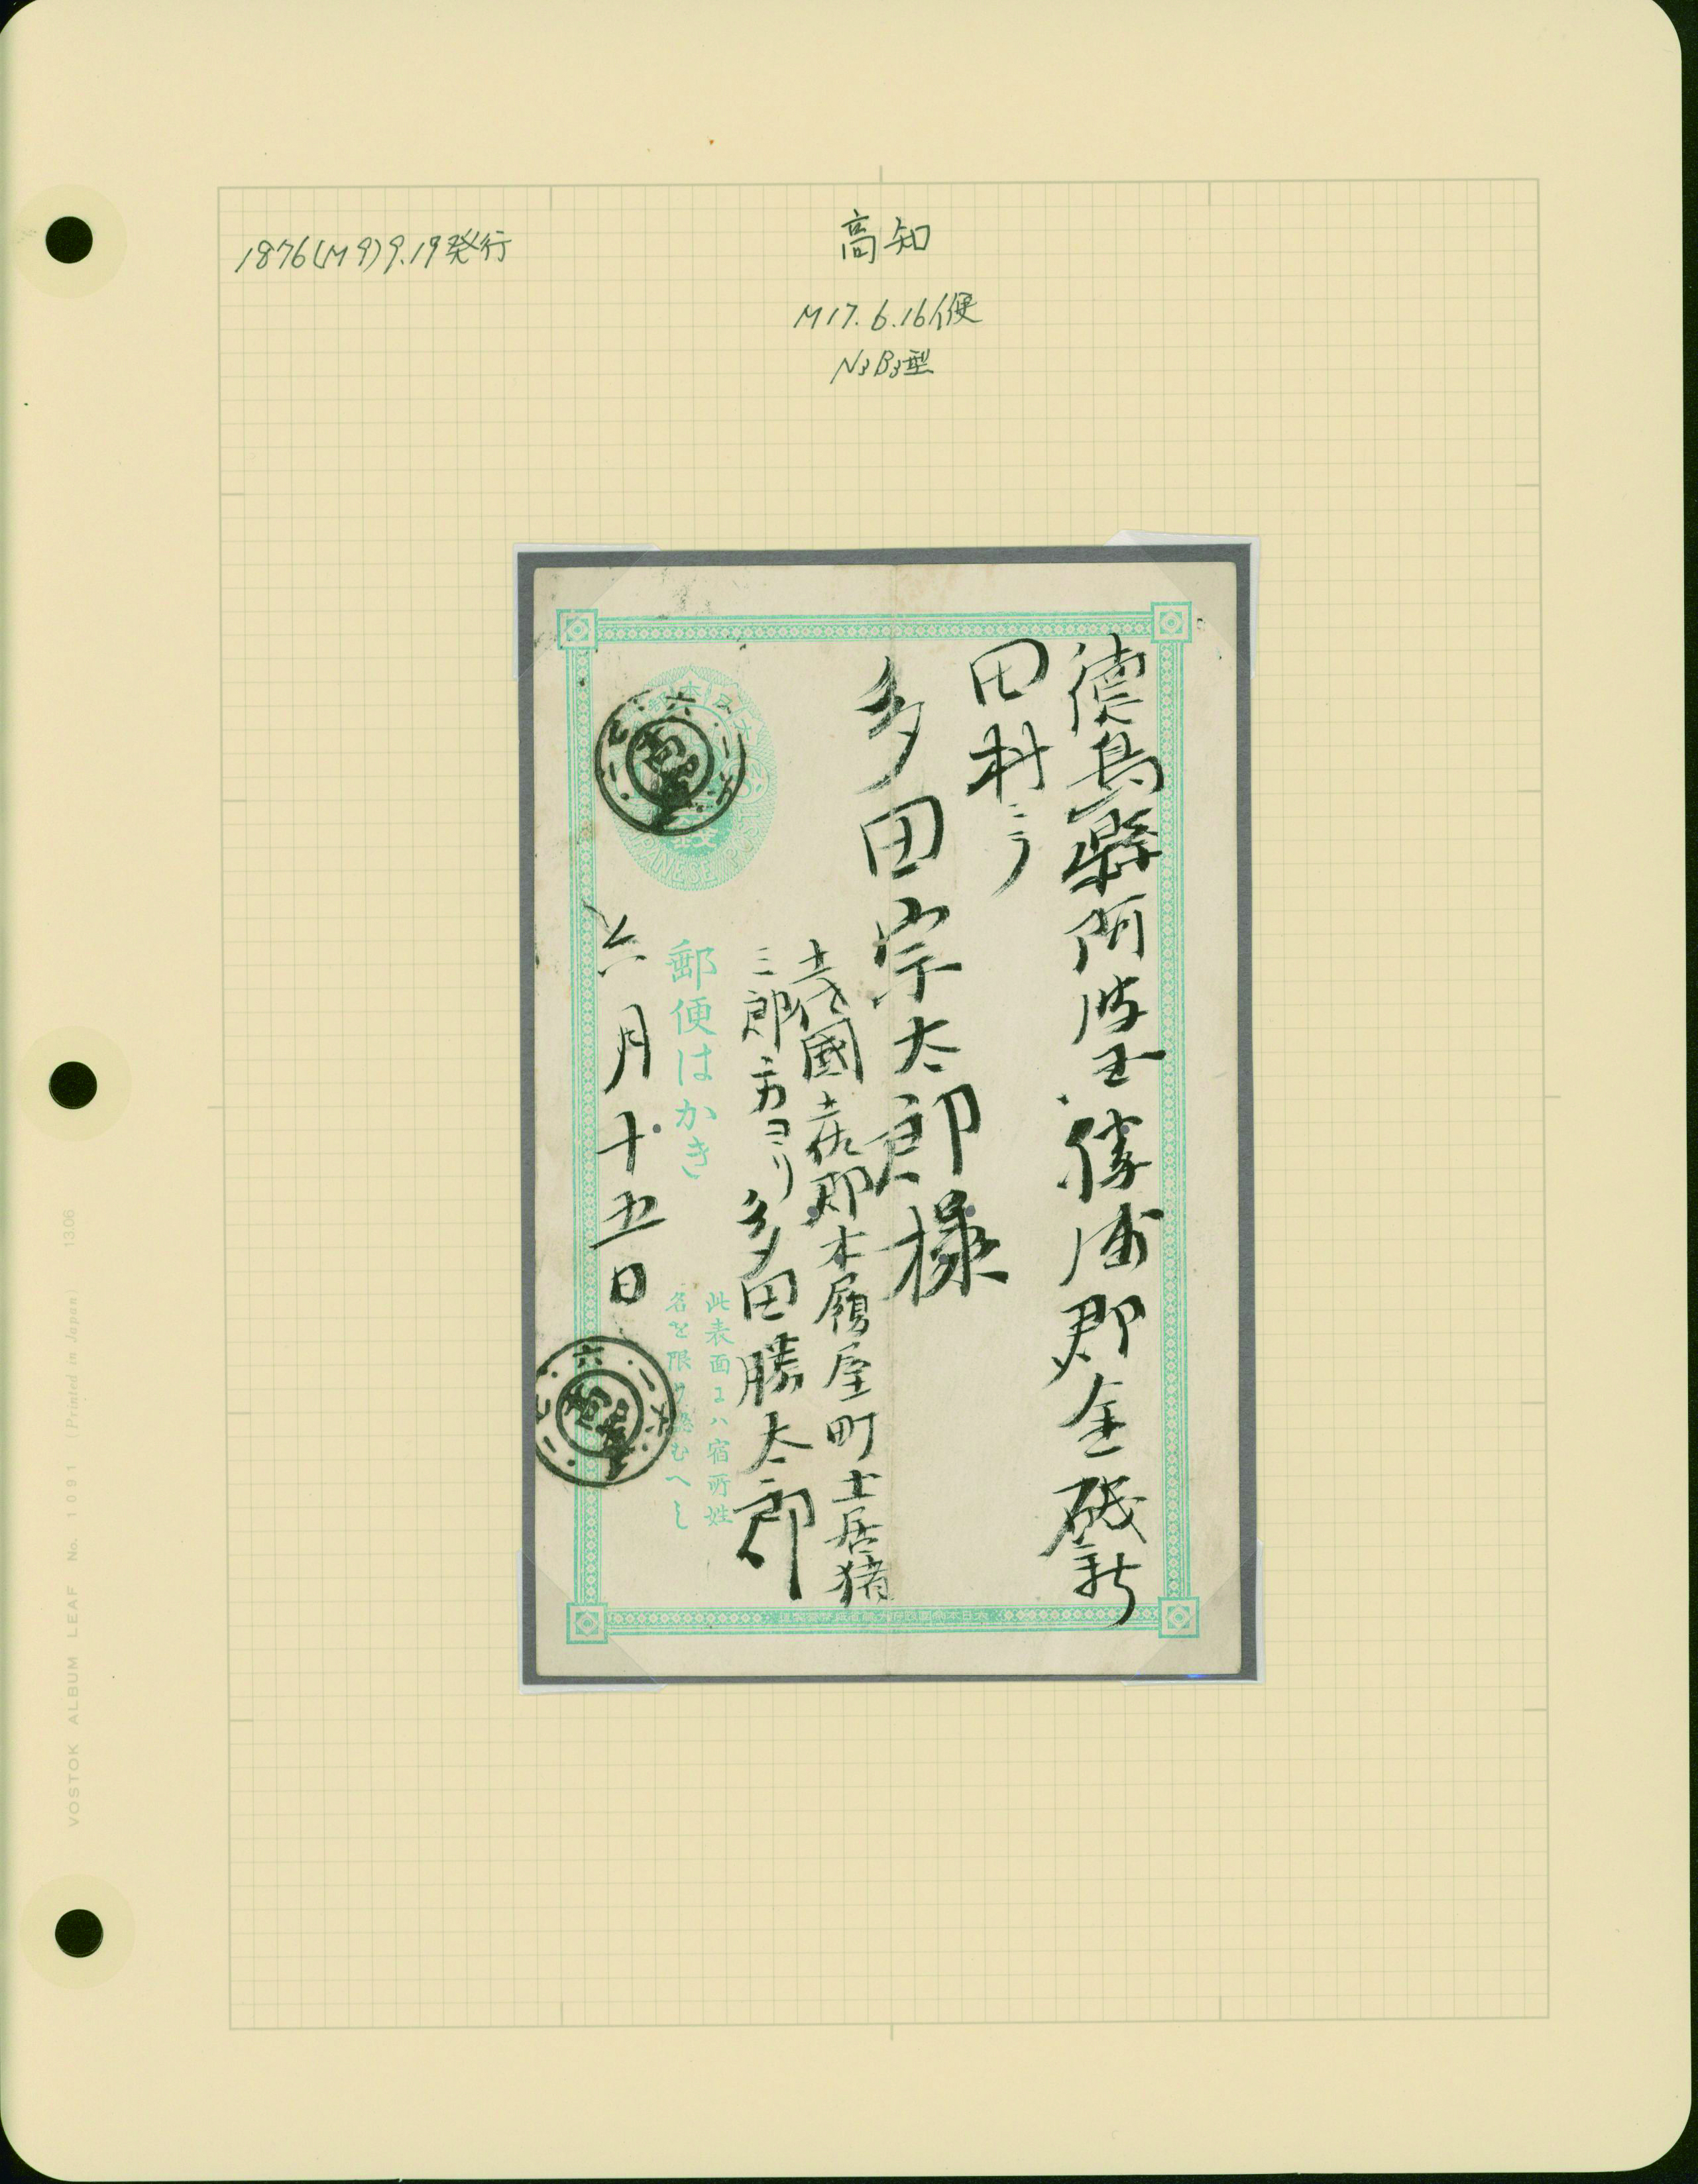 1876(M9)9.19発行
高知
M17.6.16イ便
N3B3型
徳島縣阿波国勝浦郡金磯新
田村ニテ
多田宗太郎様
土佐國土佐郡木履屋町土居猪
三郎方ヨリ多田勝太郎
六月十五日
郵便はかき
此表面エハ宿所姓
名を限り認むへし
JAPANESE POST
VOSTOK ALBUM LEAF No. 1091 (Printed in Japan) 1306